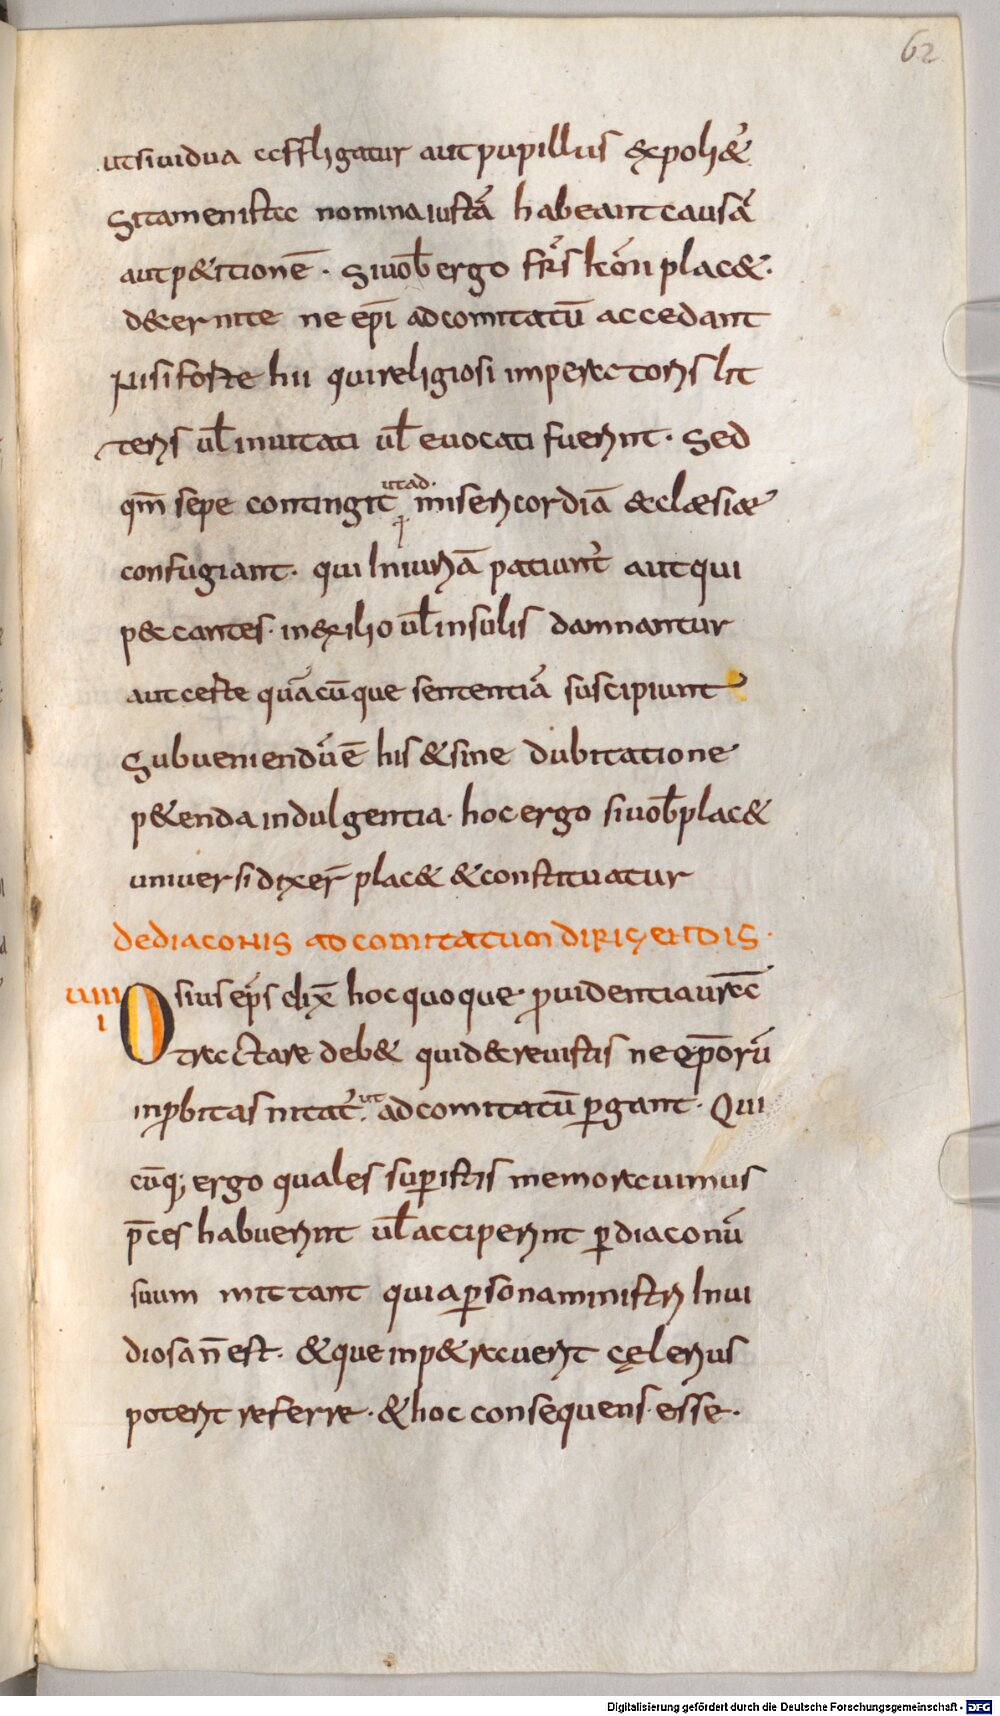 62
utsiuidua affligatur aut pupillus expoliet̉
Sitamen istae nomina iustā habeant causā
aut petitionē · Siuob̄ ergo fr̄s km̄i placet·
decernite ne epī adcomitatū accedant
Nisi forte hii quireligiosi imperatoris lit
teris ul̄ inuitati ul̄ euocati fuerint · Sed
qm̄ sepe contingit ut ad· misericordiā aeclaesiae
confugiant · qui Iniuriā patiunt̉ aut qui
peccantes · inexilio ul̄ insulis damnantur
aut certe quācūque sententiā suscipiunt
Subueniendū ē his & sine dubitatione
petenda indulgentia · hoc ergo siuob̄ placet
uniuersi dixer̄ placet & constituatur
dediaconis ad comitatum dirigendis ·
uiiii
I
Osius ep̄s dix̄ hoc quoque prouidentia ur̄a
tractare debet quid decreuistis ne ep̄orū
inprobitas nitat̉ ut ad comitatū pergant · Qui
cūq; ergo quales superistis memorauimus
p̄ces habuerint ul̄ acciperint per diaconū
suum mittant quia persona ministri Inui
diosa n̄ est · & que inpetrauerit celerius
poterit referre · & hoc consequens esse ·
Digitalisierung gefördert durch die Deutsche Forschungsgemeinschaft - DFG